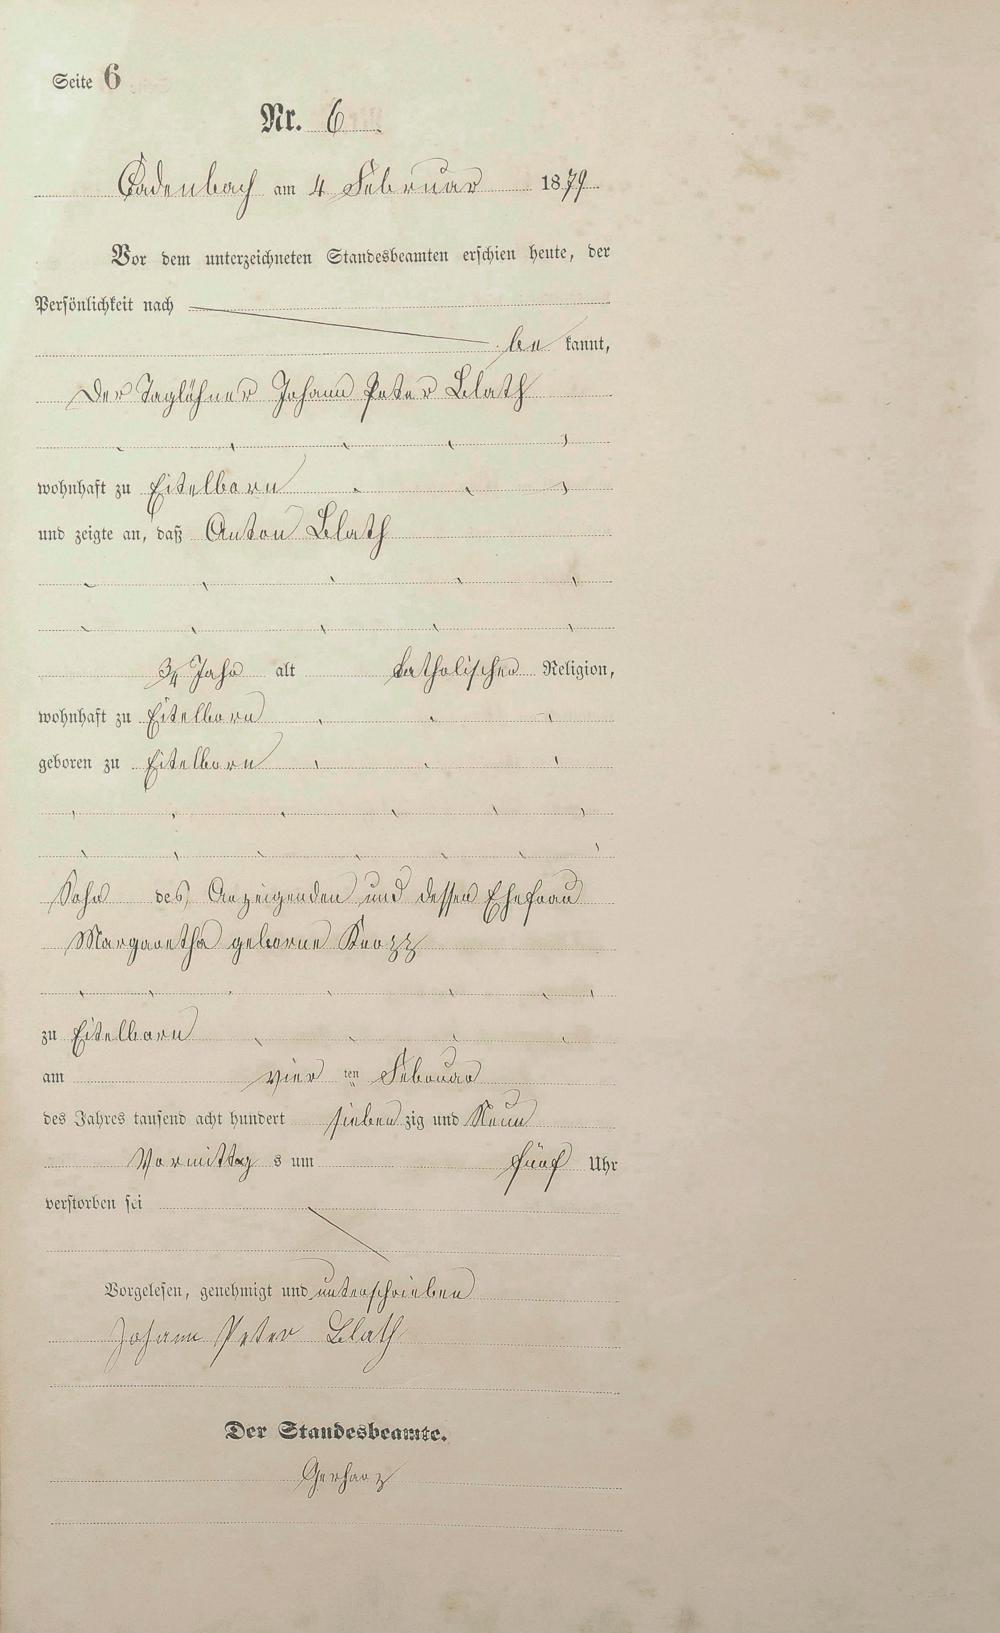 Seite 6
Nr. 6
Cadenbach am 4 Februar 1879
Vor dem unterzeichneten Standesbeamten erschien heute, der
Persönlichkeit nach
be kannt,
der Taglöhner Johann Peter Blath
wohnhaft zu Eitelborn
und zeigte an, daß Anton Blath
3/4 Jahr alt katholischer Religion,
wohnhaft zu Eitelborn
geboren zu Eitelborn
Sohn des Anzeigenden und dessen Ehefrau
Margaretha geborne
zu Eitelborn
am vier ten Februar
des Jahres tausend acht hundert sieben zig und Neun
Vormittag s um fünf Uhr
verstorben sei
Vorgelesen, genehmigt und unterschrieben
Johann Peter Blath
Der Standesbeamte.
Gerharz